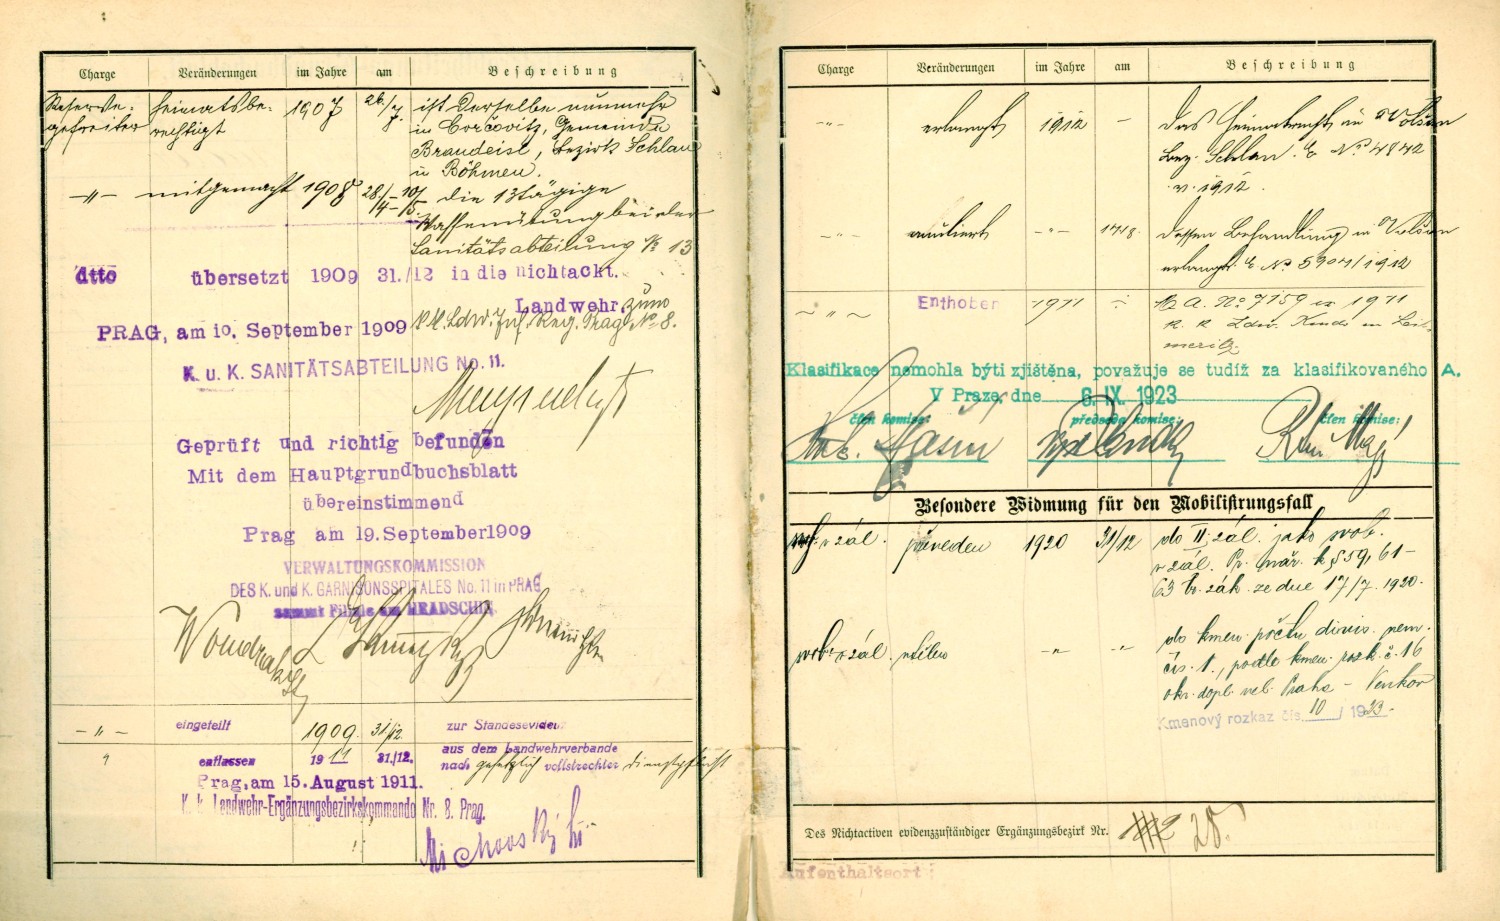 Charge Veränderungen im Jahre am Beschreibung
Reserve- heimatsbe- 1907 26./7. ist derselbe nunmehr
gefreiter rechtigt in Corčovitz, Gemeinde
Brandeisl, Bezirk Schlan
in Böhmen.
-"- mitgemacht 1908 28./4 - 10/5 - die 13tägige
Waffenübung bei der
Sanitätsabteilung № 13
dtto übersetzt 1909 31./12 in die nichtackt.
Landwehr, zum
PRAG, am 10. September 1909 k.k. Ldw. Inf. Reg. Prag No 8.
K. u. K. SANITÄTSABTEILUNG No. 11.
Geprüft und richtig befunden
Mit dem Hauptgrundbuchsblatt
übereinstimmend
Prag am 19. September 1909
VERWALTUNGSKOMMISSION
DES K. und K. GARNISONSSPITALES No. 11 in PRAG
sammt Filiale am HRADSCHIN.
-"- eingeteilt 1909. 31/12. zur Standesevidenz
" entlassen 1911 31./12. aus dem Landwehrverbande
nach gesetzlich vollstreckter Dienstpflicht
Prag, am 15. August 1911.
K. k. Landwehr-Ergänzungsbezirkskommando Nr. 8. Prag.
Charge Veränderungen im Jahre am Beschreibung
-"- erlangt 1912 - das Heimatrecht in Volšan
Bez. Schlan. E No 4842
v. 1912.
-"- annuliert -"- dessen Behandlung in Volšan
erlangt. E. No 5904/1912
~ " ~ Enthoben 1911 ÷ M.A. No 7159 ex 1911
k. k. Ldw. Kmdo in Leit-
meritz.
Klasifikace nemohla býti zjištěna, považuje se tudíž za klasifikovaného A.
V Praze, dne 6. IX. 1923
člen komise: předseda komise: člen komise:
Besondere Widmung für den Mobilisirungsfall
svob. v zál. převeden 1920 31/12 do II. zál. jako svob.
v zál. Pr. nař. k § 59, 61-
63 br. zák. ze dne 17/7. 1920.
svob. v zál. vtělen -"- -"- do kmen. počtu divis. nem.
čís. 1., podle kmen. rozk. č. 16
okr. dopl. vel. Praha - Venkov
Kmenový rozkaz čís. 10 / 1923.
Des Nichtactiven evidenzzuständiger Ergänzungsbezirk Nr. 28.
Aufenthaltsort: